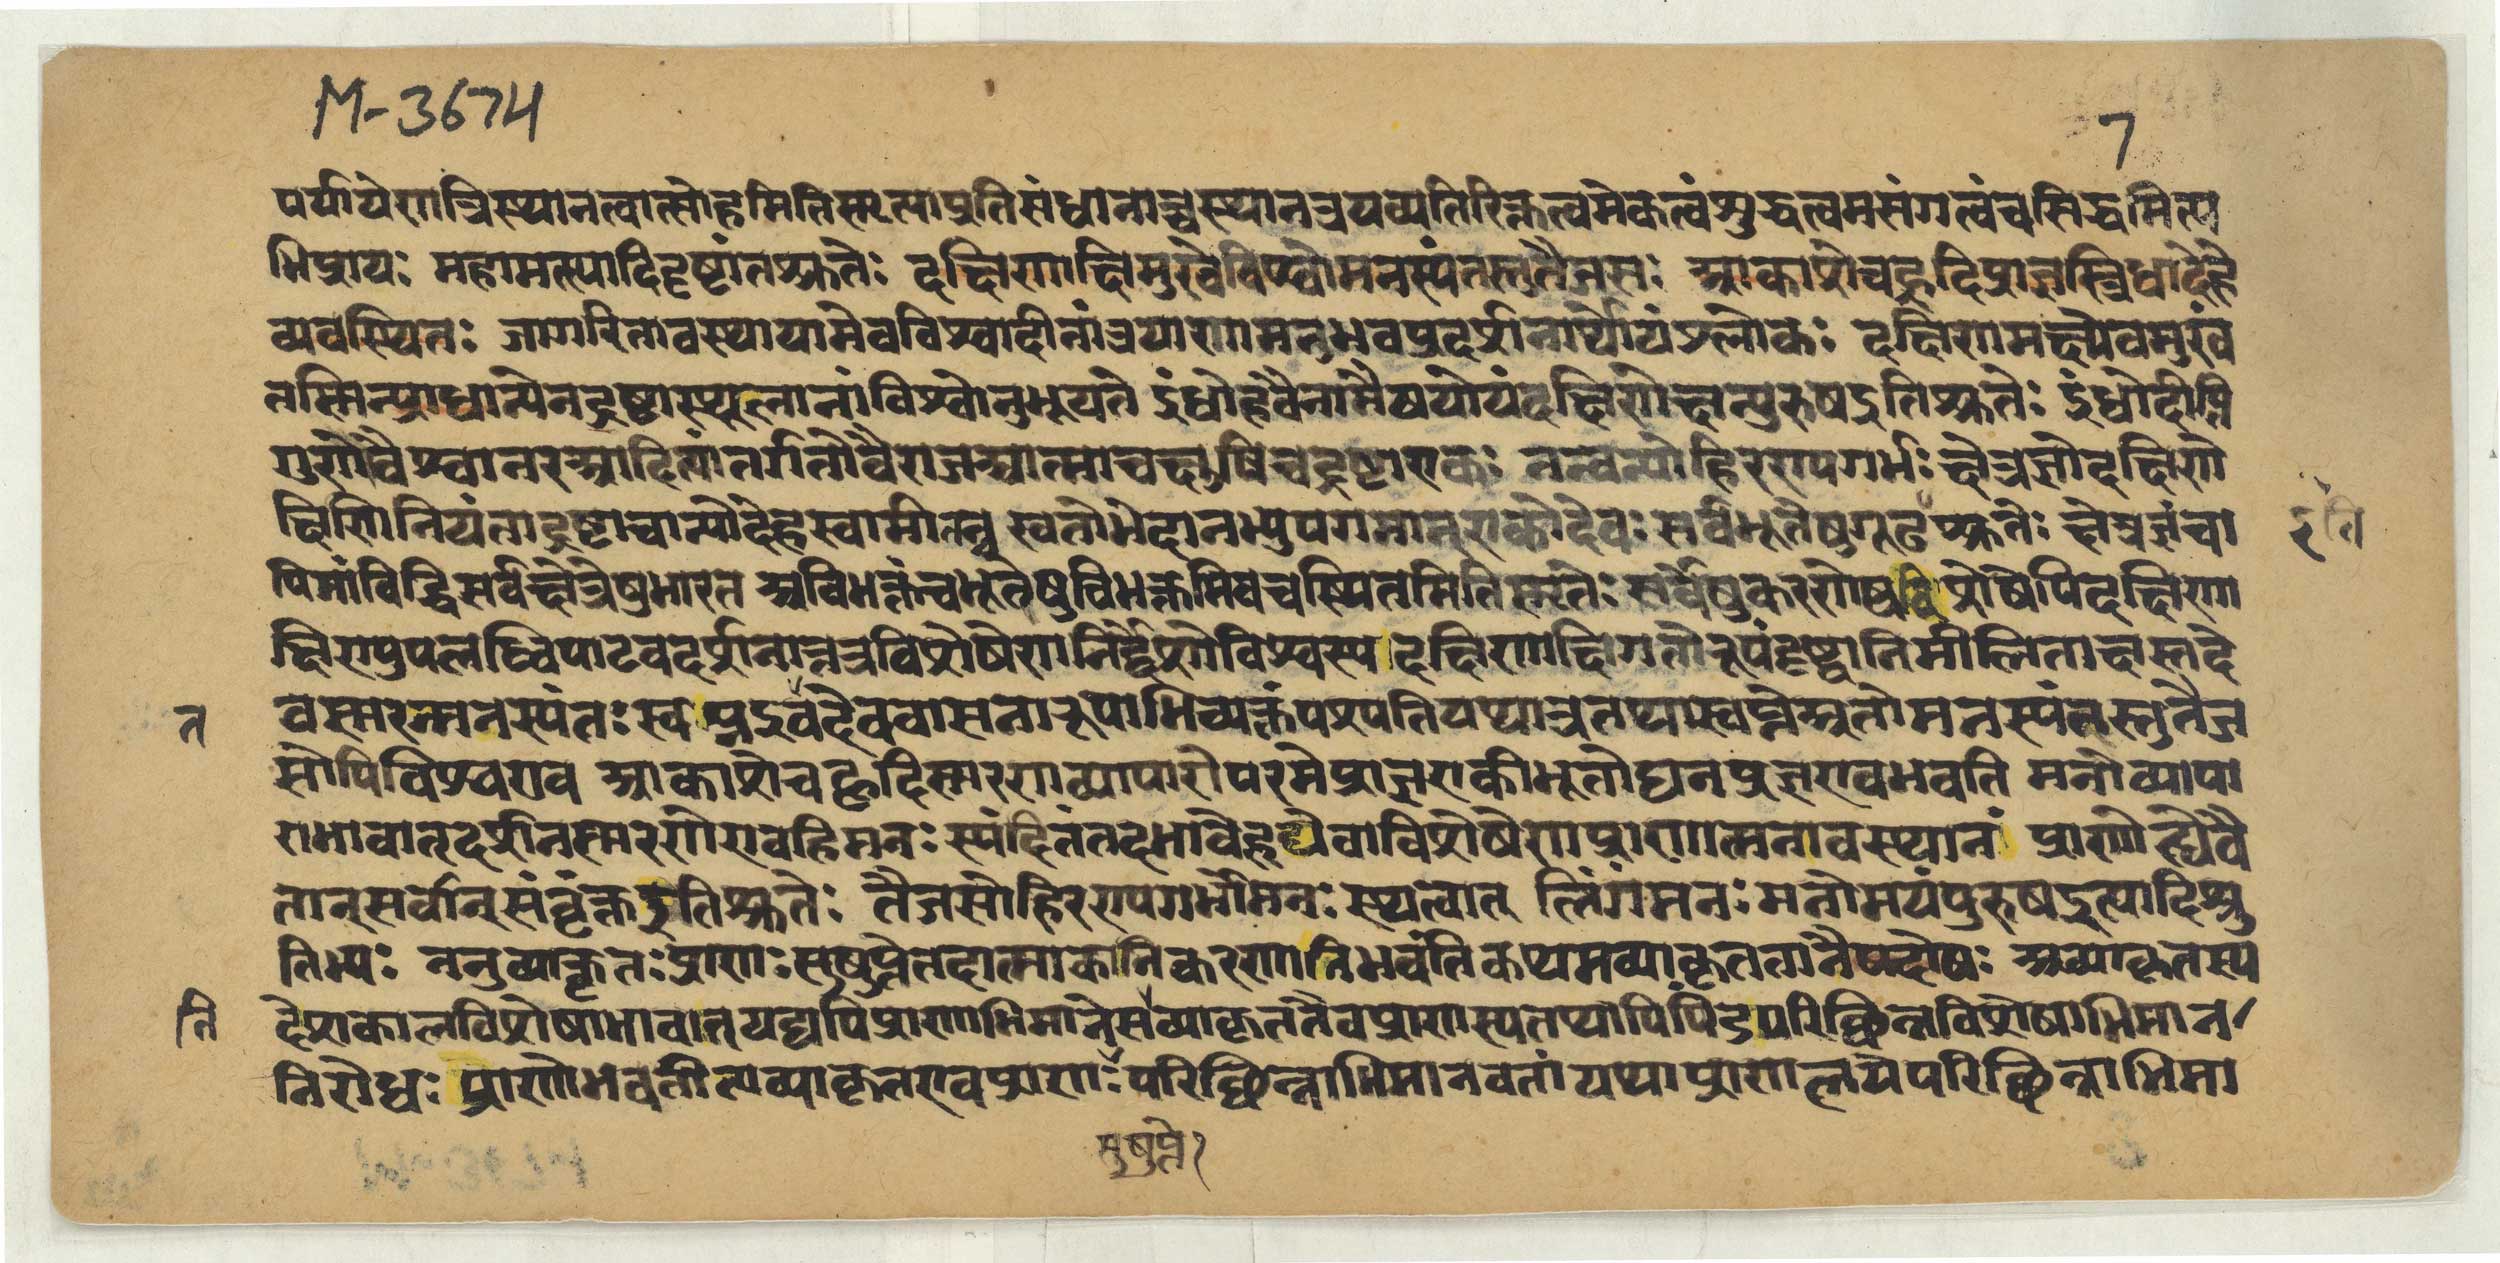 M-3674
7
पर्यायेणत्रिस्थानत्वात्सोहमितिस्मृत्याप्रतिसंधानाच्चस्थानत्रयव्यतिरिक्तत्वमेकत्वंशुद्धत्वमसंगत्वंचसिद्धमित्य
भिप्रायः महामत्स्यादिदृष्टांतश्रुतेः दक्षिणाक्षिमुखेविश्वोमनस्यंतस्तुतैजसः आकाशेचहृदिप्राज्ञस्त्रिधादेहे
व्यवस्थितः जागरितावस्थायामेवविश्वादीनांत्रयाणामनुभवप्रदर्शनार्थोयंश्लोकः दक्षिणमक्ष्येवमुखं
तस्मिन्प्राधान्येनद्रष्टास्थूलानांविश्वोनुभूयते इंधोहवैनामैषयोयंदक्षिणेक्षन्पुरुषइतिश्रुतेः इंधोदीप्ति
गुणोवैश्वानरआदित्यांतर्गतोवैराजआत्माचक्षुषिचद्रष्टाएकः नत्वन्योहिरण्यगर्भः क्षेत्रज्ञोदक्षिणे
क्षिणिनियंताद्रष्टाचान्योदेहस्वामीतन्न स्वतोभेदानभ्युपगमात् एकोदेवः सर्वभूतेषुगूढश्रुतेः क्षेत्रज्ञंचा
इति
पिमांविद्धिसर्वक्षेत्रेषुभारत अविभक्तंचभूतेषुविभक्तमिवचस्थितमितिस्मृतेः सर्वेषुकरणेष्वविशेषेपिदक्षिणा
क्षिण्युपलब्धिपाटवदर्शनात्तत्रविशेषेणनिर्द्देशोविश्वस्य दक्षिणाक्षिगतोरूपंदृष्ट्वानिमीलिताक्षस्तदे
त
वस्मरन्मनस्यंतः स्वप्नइवदेववासनारूपाभिव्यक्तंपश्यतियथात्रतथास्वप्नेअतोमनस्यंतस्तुतैज
सोपिविश्वएव आकाशेचहृदिस्मरणव्यापारोपरमेप्राज्ञएकीभूतोघनप्रज्ञएवभवति मनोव्यापा
राभावात् दर्शनस्मरणेएवहिमनः स्पंदितंतदभावेहृद्येवाविशेषेणप्राणात्मनावस्थानं प्राणोह्येवै
तान्सर्वान्संवृंक्तइतिश्रुतेः तैजसोहिरण्यगर्भोमनः स्थत्वात् लिंगंमनः मनोमयंपुरुषइत्यादिश्रु
तिभ्यः ननुव्याकृतः प्राणः सषुप्तेतदात्माकानिकरणानिभवंतिकथमव्याकृततानैषदोषः अव्याकृतस्य
नि
देशकालविशेषाभावात् यद्यपिप्राणाभिमानेसव्याकृततैवप्राणस्यतथापिपिंडपरिच्छिन्नविशेषाभिमान
निरोधः प्राणोभवतीत्यव्याकृतएवप्राणः परिच्छिन्नाभिमानवतांयथाप्राणलयेपरिच्छिन्नाभिमा
सुषुप्ते